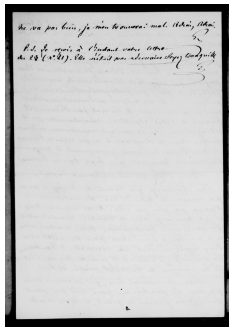 ne va pas bien, je m'en trouverai mal. Adieu, Adieu,
G.
P.S. Je reçois à l'instant votre lettre
du 24 (n° 21). Elle n'était pas Soyez tranquille
G.
2